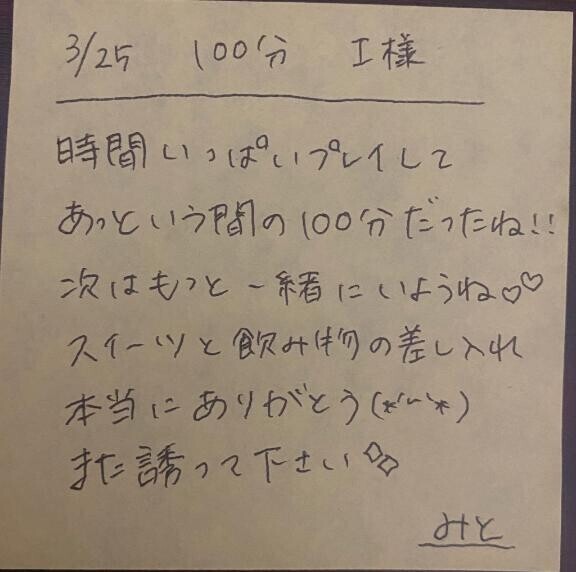 3/25 100分 I様
時間いっぱいプレイして
あっという間の100分だったね!!
次はもっと一緒にいようね♡♡
スイーツと飲み物の差し入れ
本当にありがとう(*ˊᵕˋ*)
また誘って下さい◇◇
みと